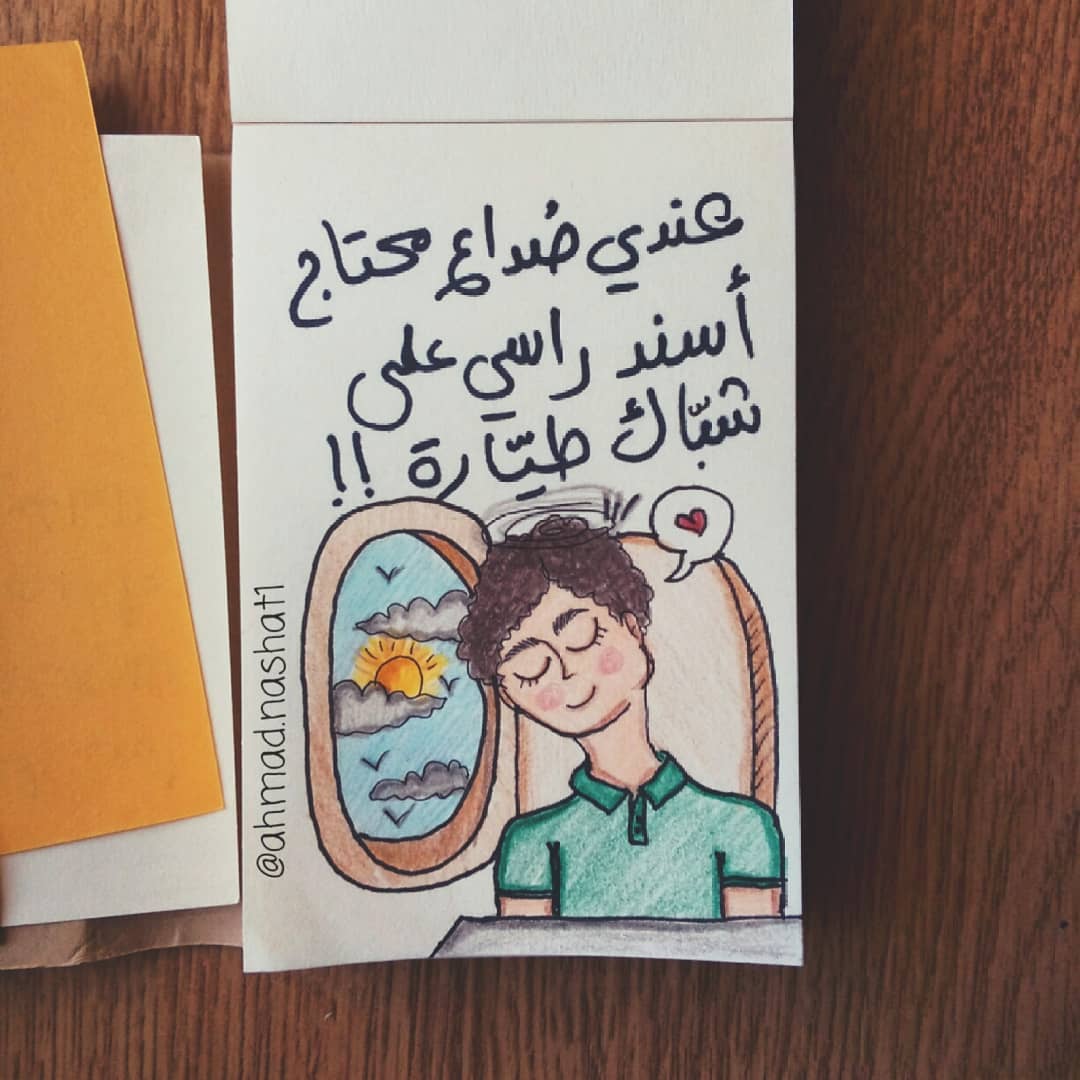 عندي صُداع محتاج
أسند راسي على
شبّاك طيّارة !!
@ahmad.nashat1